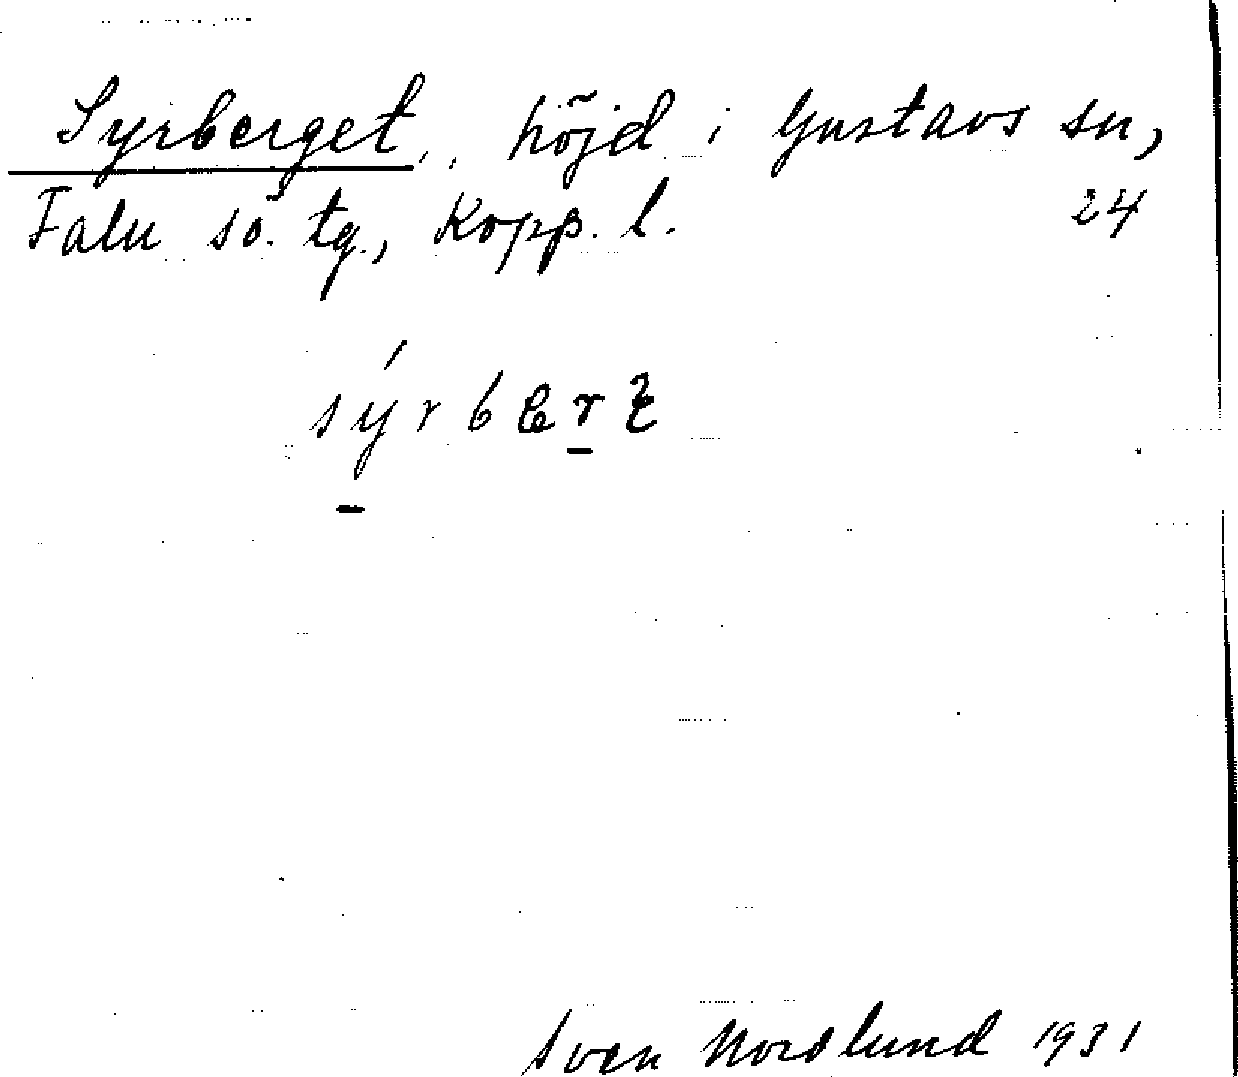 Syrberget, höjd i Gustavs sn,
Falu sö. tg., Kopp. l. 24
Sven Nordlund 1931